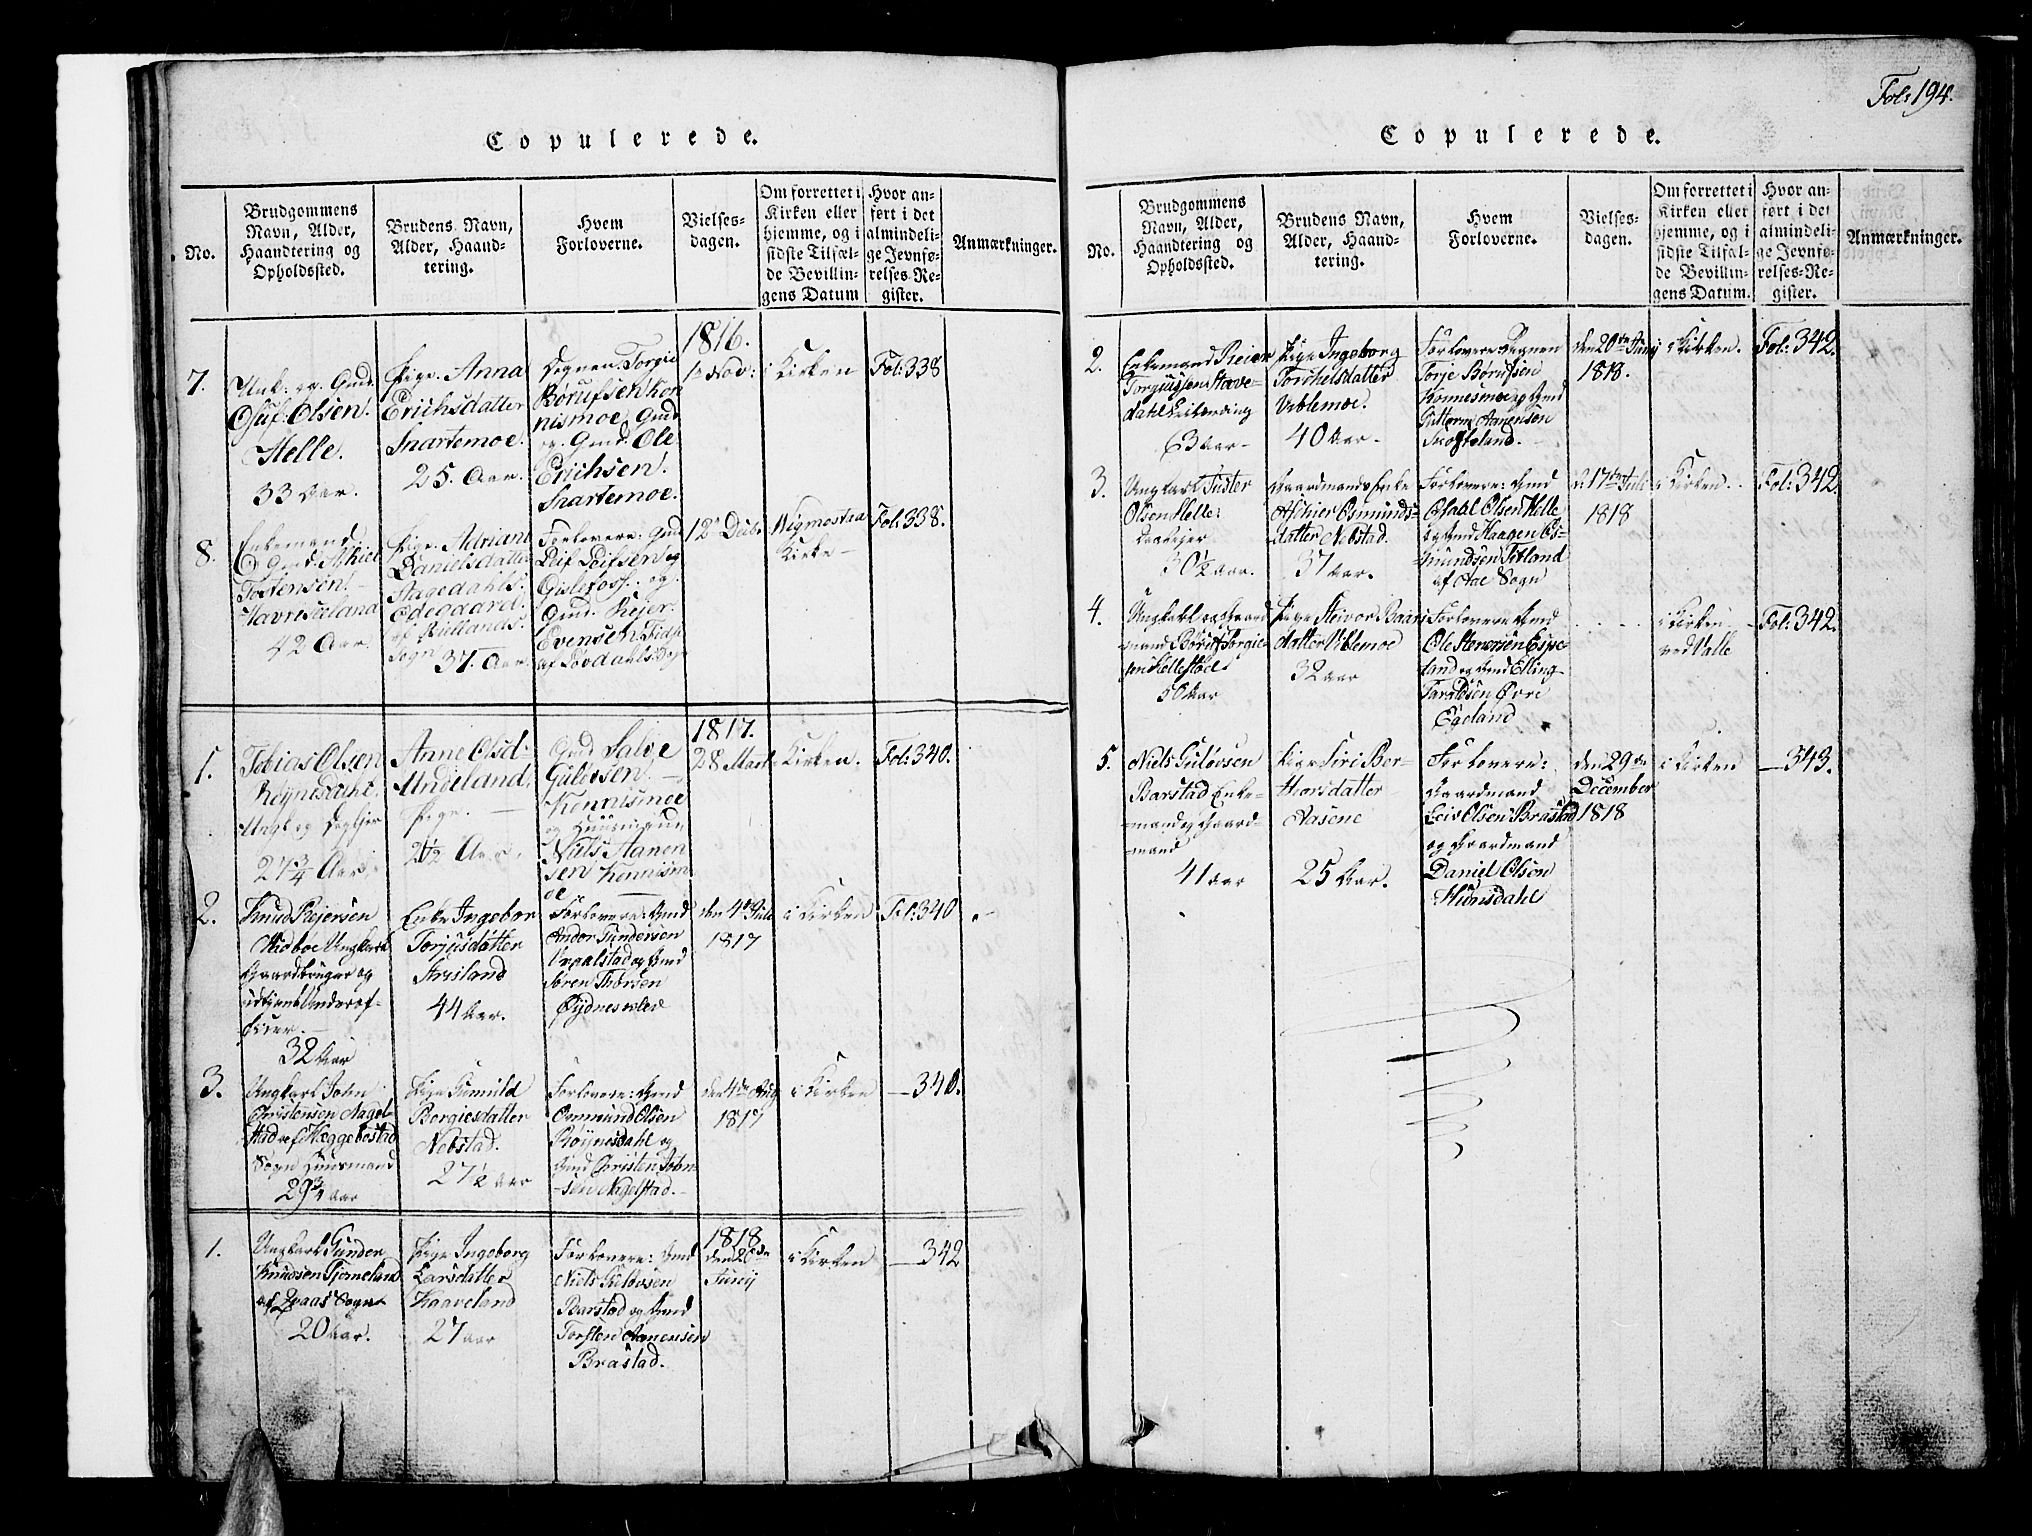 Fol: 194.
Copulerede.
No.
Brudgommens
Navn, Alder,
Haandtering og
Opholdssted.
Brudens Navn,
Alder, Haand-
tering.
Hvem
Forloverne.
Vielses-
dagen.
Om forrettet i
Kirken eller
hjemme, og i
sidste Tilfæl-
de Bevillin-
gens Datum
Hvor an-
ført i det
almindeli-
ge Jevnfø-
relses-Re-
gister.
Anmærkninger.
7.
Unk: og Gmd.
Oluf Olsen
Helle.
33 Aar.
Pige Anna
Erichsdatter
Snartemoe.
25. Aar.
Degnen Torgie
Børufsen Kon
nismoe, Gmd
og Gmd. Ole
Erichsen
Snartemoe.
1816.
1 Nov:
i Kirken
Fol: 338
8.
Enkemand
Tostensen
Havrisseland
42 Aar.
Pige. Adriane
Danielsdatter
Aagedahls
Ødegaard.
af Biellands
Sogn
37. Aar.
Forlovere: Gmd
Leif Leifsen og
Gislefoss. og
Gmd. Rejer
Evensen
af Løvdahls Sogn
12 Decbr
Wigmostea
Kirke
Fol: 338.
1.
Tobias Olsen
Røynesdahl
Ungk og
27¾ Aar
Anne Olsd.
Undeland,
Pige.
21½ Aar.
Gmd Salve
Guldvsen
Konnismoe
og Huusmand
Niels Aanen
sen Konnism
oe
1817.
28 Mart
i Kirken.
Fol: 340.
2.
Knud Rejersen
Midbøe Ungkarl
Gaardbruger og
udtient Underof-
ficeer.
32 Aar
Enke Ingebor
Torjusdatter
Strisland
44 Aar.
Forlovere: Gmd
Andor Gundersen
og Gmd
Søren Thorsen
Øydnesklev
den 4de Juli
1817
i Kirken
Fol: 340
3.
Ungkarl John
Christensen Nagel-
stad af Heggebostad
Sogn Huusmand
29¾ aar
Pige Gunild
Borgiesdatter
Nebstad.
27½ aar
Forlovere: Gmd
Osmund Olsen
Røynesdahl og
Gmd Christen John
sen Nagelstad.
den 4de Aug
1817
i Kirken
— 340.
1.
Ungkarl Gunder
Knudsen Tjomeland
af Qvaas Sogn
20 Aar.
Pige Ingeborg
Larsdatter
Haaveland
27 aar
Forlovere: Gmd
Niels Guldvsen
Barstad og Gmd
Torsten Aanensen
Brastad.
1818
den 20de
Junij
i Kirken
— 342
Copulerede.
No.
Brudgommens
Navn, Alder,
Haandtering og
Opholdssted.
Brudens Navn,
Alder, Haand-
tering.
Hvem
Forloverne.
Vielses-
dagen.
Om forrettet i
Kirken eller
hjemme, og i
sidste Tilfæl-
de Bevillin-
gens Datum.
Hvor an-
ført i det
almindeli-
ge Jevnfø-
relses-Re-
gister.
Anmærkninger.
2.
Enkemand Reier
Torgiussen Haave-
dahl
63 Aar
Pige Ingeborg
Torchelsdatter
Ublemoe.
40 Aar.
Forlovere Degnen
Torje Børufsen
Konnesmoe og Gmd
Guttorm Aanensen
Skofteland.
den 20de Junij
1818.
i Kirken.
Fol: 342.
3.
Ungkarl Juster
Olsen Helle
30½ aar.
Gaardmands Enke
Aschier Osmunds-
datter Nebstad.
37 Aar.
Forlovere: Gmd
Olsen Helle
og Gmd Haagen Os-
mundsen Fitland
af Aae Sogn
d: 17de Juli
1818
i Kirken
Fol: 342.
4.
Ungkarl og Gaard
mand Børuf Torgie-
sen Hellestøel
30 Aar
Pige Steivor Baars
datter Ublemoe
32 aar
Forlovere Gmd
Ole Stenersen Espe-
land og Gmd Elling
Taraldsen Øvre
Egeland
i Kirken
ved Valle
Fol: 342.
5.
Niels Guldvsen
Barstad Enke-
mand og Gaard-
mand
41 aar
Pige Siri Ber-
thorsdatter
Aasene
25 Aar.
Forlovere:
Gaardmand
Leiv Olsen Brastad
og Gaardmand
Daniel Olsen
Hunsdahl
den 29de
December
1818
i Kirken
— 343.